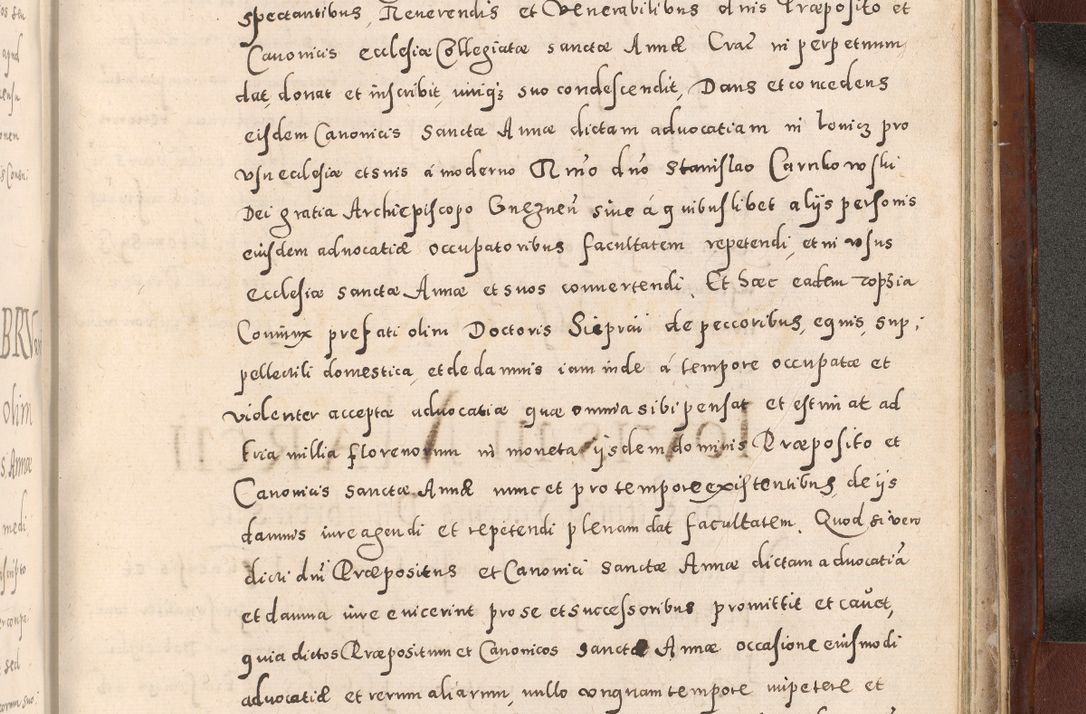 spectantibus, Reverendis et Venerabilibus dnis Præposito et
Canonicis ecclesiæ Collegiatæ sanctæ Annæ Crac in perpetuum
dat, donat et inscribit, viriqз suo condescendit, Dans et concedens
eisdem Canonicis Sanctæ Annæ dictam advocatiam in pro
usu ecclesiæ et suis á moderno Rmo dno Stanislao Carnkowski
Dei gratia Archiepiscopo Gneznen sive á quibuslibet alijs personis
eiusdem advocatiæ occupatoribus facultatem repetendi, et in usus
Ecclesiæ sanctæ Annæ et suos convertendi. Et hæc eadem
Coniunx prefati olim Doctoris de peccoribus, equis, sup:
pellectili domestica, et de damnis iam inde á tempore occupatæ et
violenter acceptæ advocatiæ quæ omnia sibi pensat et estimat ad
tria millia florenorum in moneta ijsdem dominis Præposito et
Canonicis Sanctæ Annæ nunc et pro tempore existentibus, de ijs
damnis iure agendi et repetendi plenam dat facultatem. Quod si vero
dicti dni Præpositus et Canonici Sanctæ Annæ dictam advocatiā
et damna iure evicerint pro se et successoribus promittit et cavet,
quia dictos Præpositum et Canonicos Sanctæ Annæ occasione eiusmodi
advocatiæ et rerum aliarum, nullo unquam tempore impetere et
BRV
olim
s Annæ
medi
sed